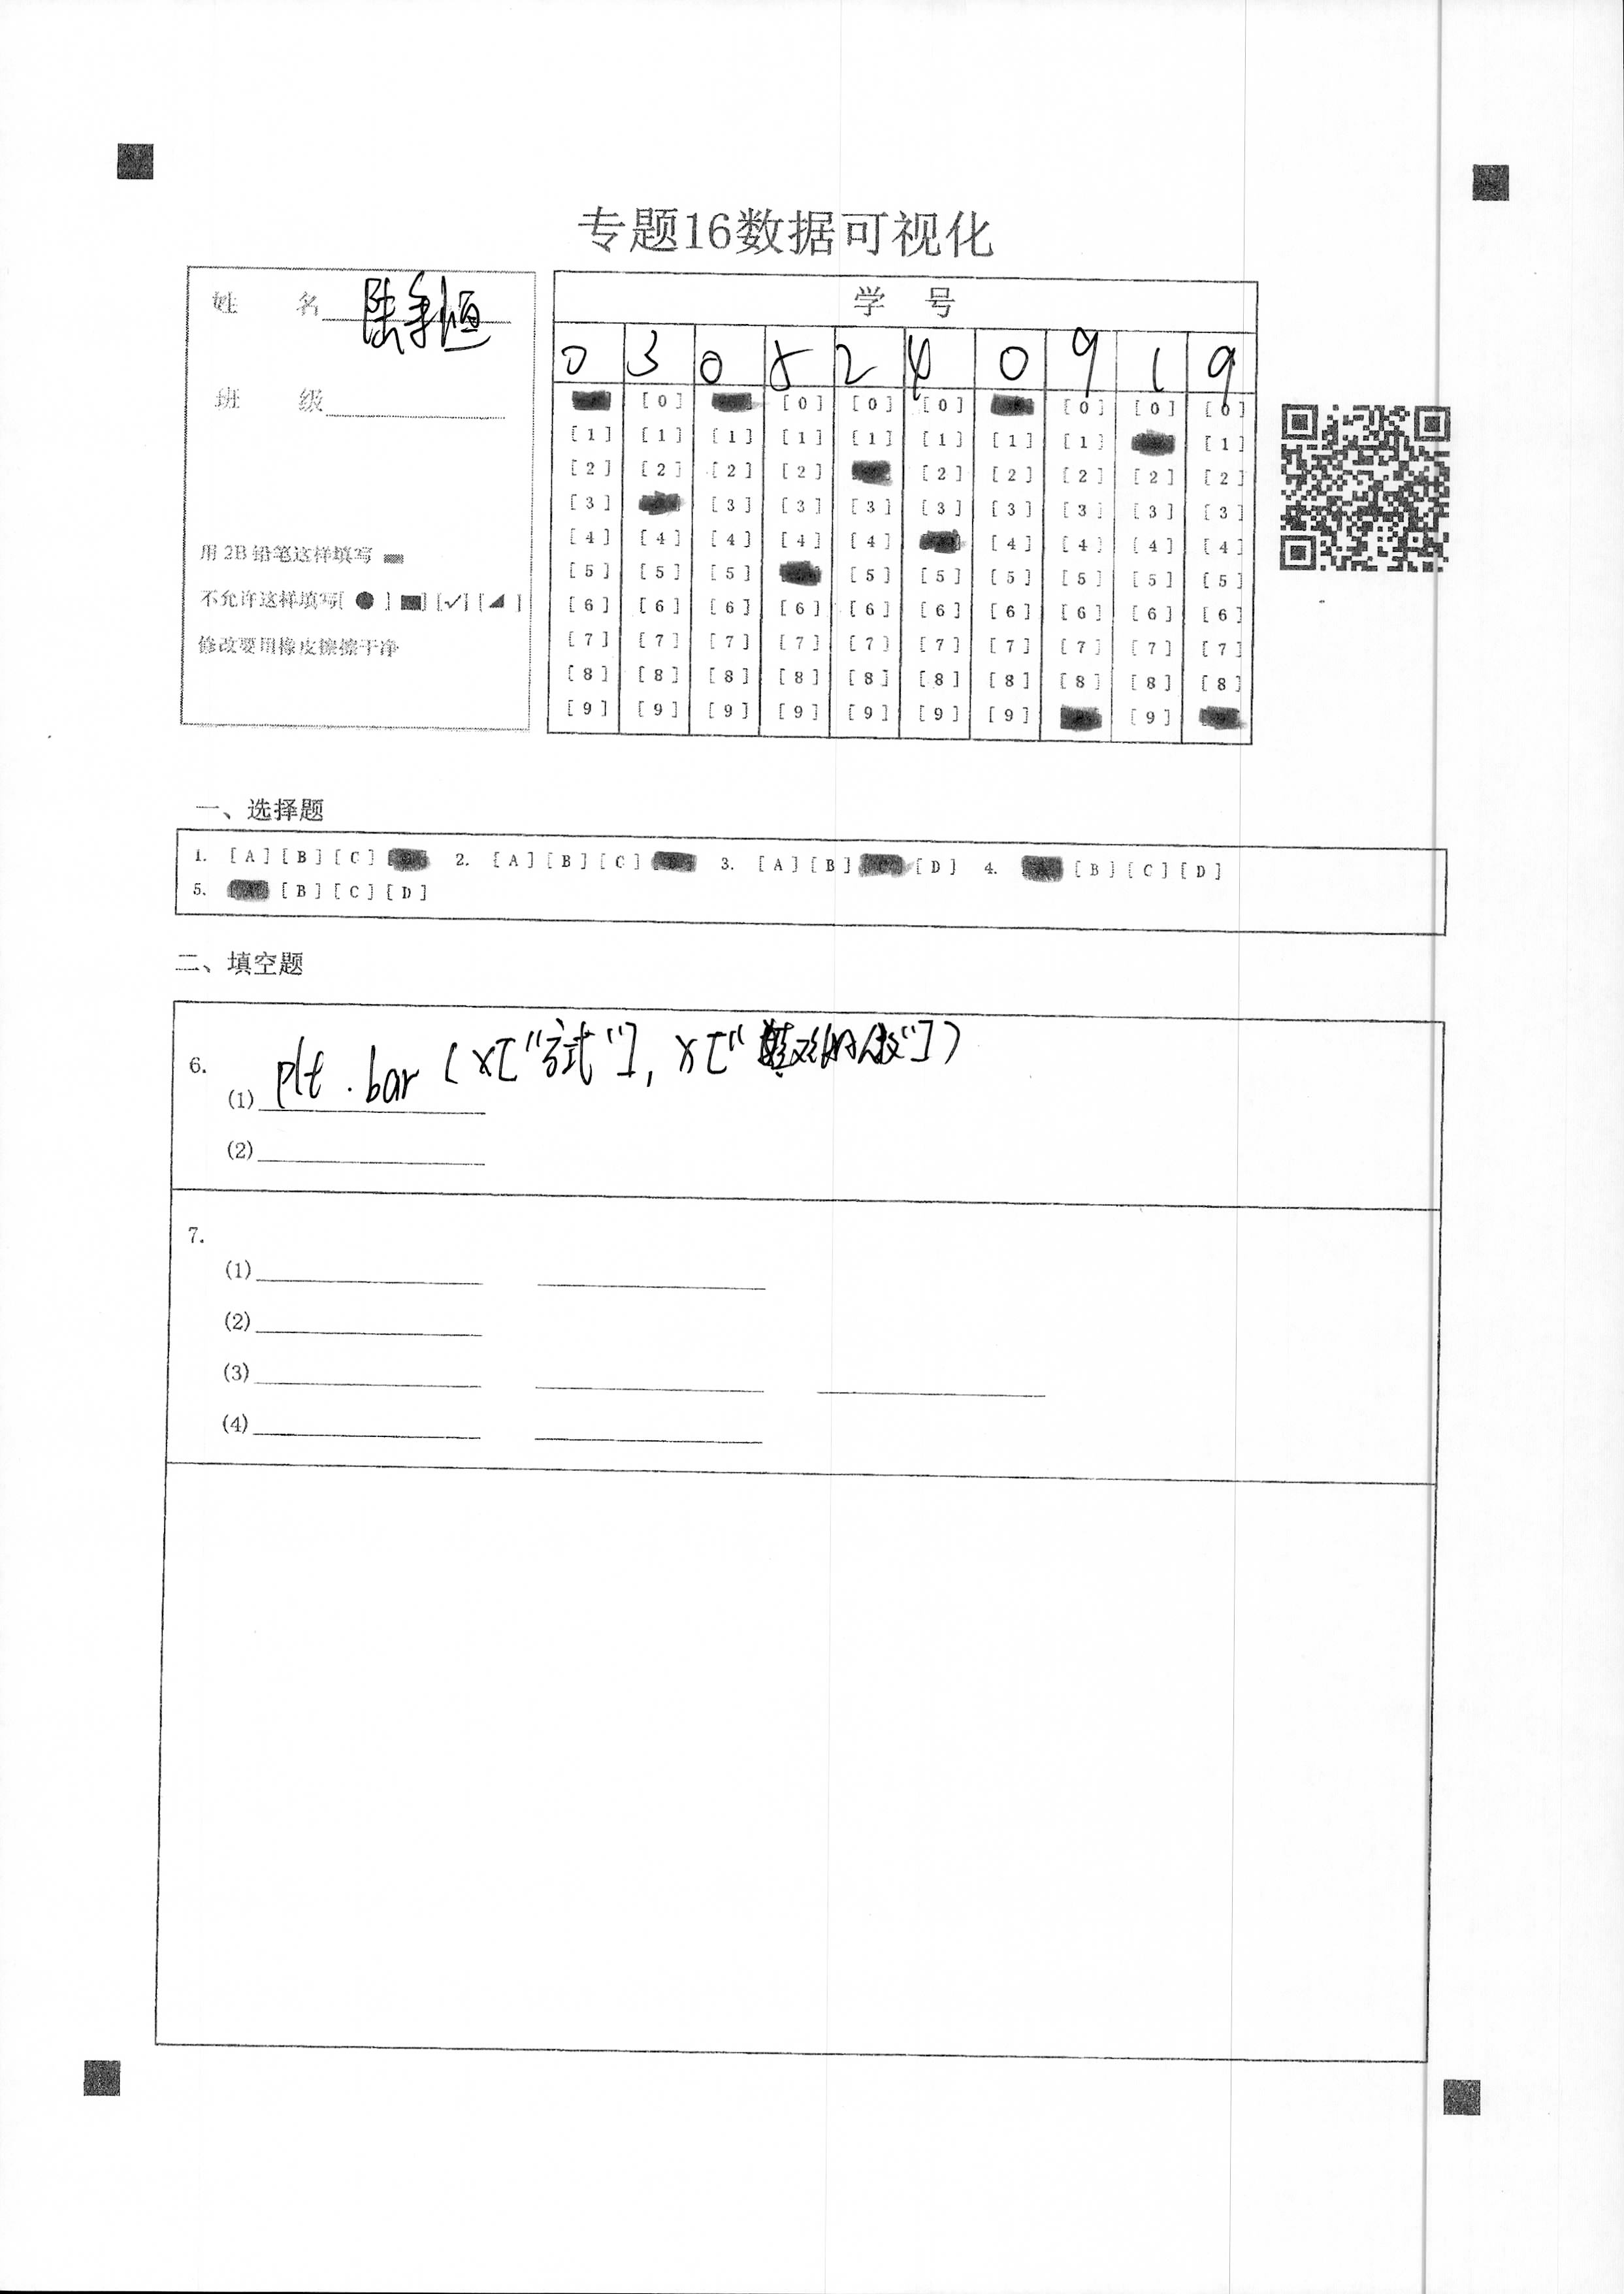 专题16数据可视化
姓 名 陆 恒
班 级
用 2B 铅笔这样填写
不允许这样填写[ ● ] [■] [✓] [◢ ]
修改要用橡皮擦擦干净
学 号
0 3 0 5 2 4 0 9 1 9
[0] [0] [0] [0] [0] [0]
[1] [1] [1] [1] [1] [1] [1] [1] [1]
[2] [2] [2] [2] [2] [2] [2] [2] [2]
[3] [3] [3] [3] [3] [3] [3] [3] [3]
[4] [4] [4] [4] [4] [4] [4] [4] [4]
[5] [5] [5] [5] [5] [5] [5] [5] [5]
[6] [6] [6] [6] [6] [6] [6] [6] [6] [6]
[7] [7] [7] [7] [7] [7] [7] [7] [7] [7]
[8] [8] [8] [8] [8] [8] [8] [8] [8] [8]
[9] [9] [9] [9] [9] [9] [9] [9]
一、选择题
1. [A] [B] [C] 2. [A] [B] [C] 3. [A] [B] [D] 4. [B] [C] [D]
5. [B] [C] [D]
二、填空题
6.
(1) plt.bar(x["方式"], x["人数"])
(2)
7.
(1)
(2)
(3)
(4)